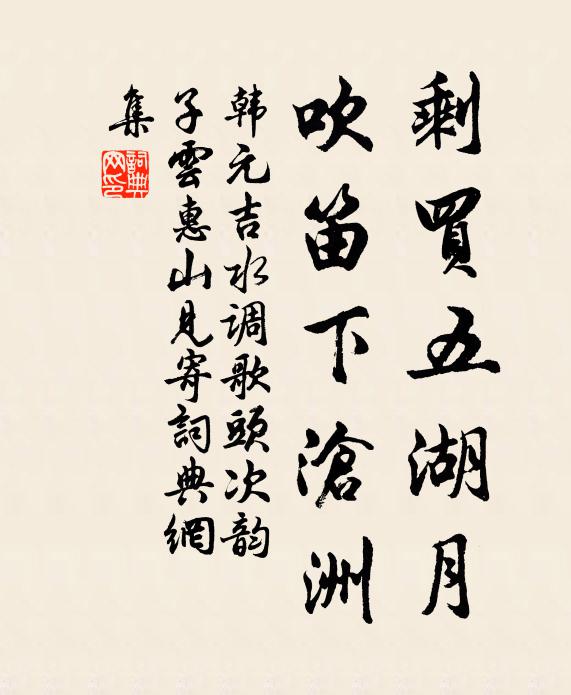 剩買五湖月
吹笛下滄洲
韩元吉水调歌頭次韵
子雲惠山見寄詞典網
集
詞典
网印